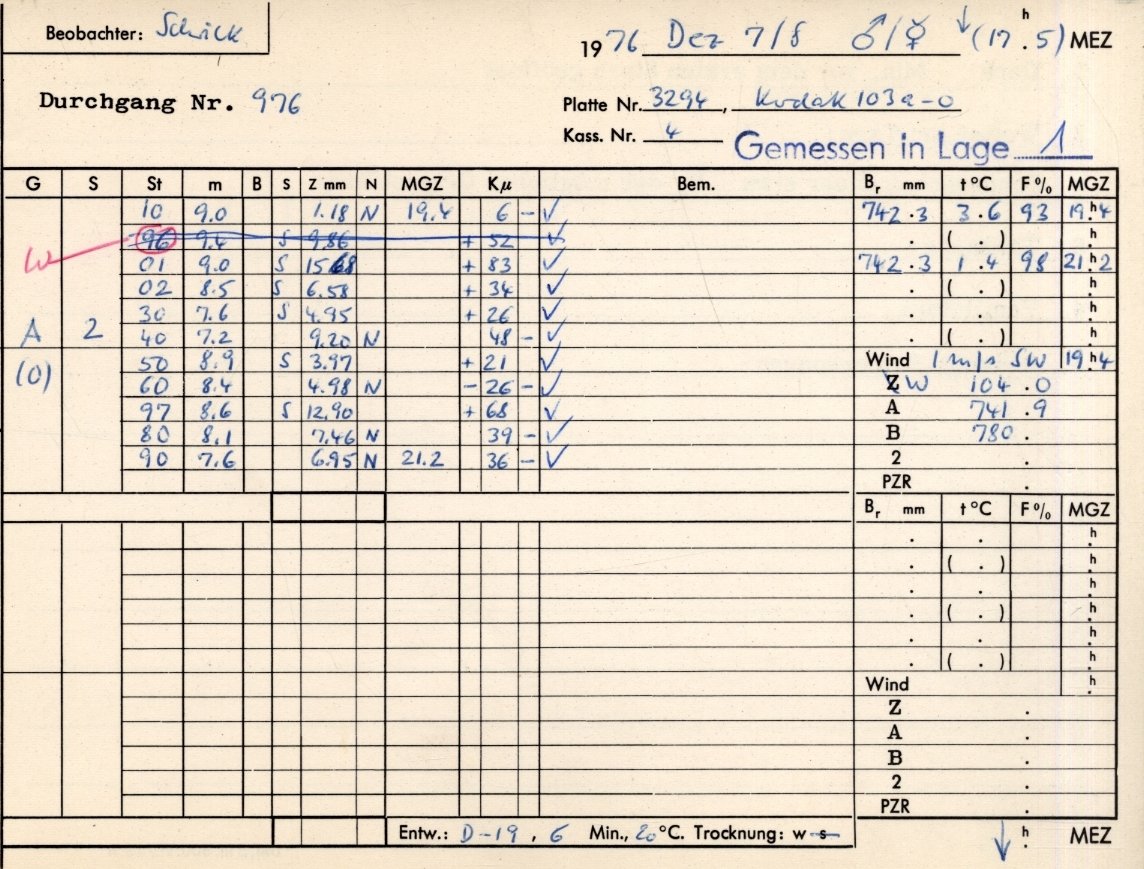 Beobachter: Schick
1976 Dez 7/8 ♂/☿ ↓(17h.5) MEZ
Durchgang Nr. 976
Platte Nr. 3294, Kodak 103a-O
Kass. Nr. 4
Gemessen in Lage 1
G S St m B S Z mm N MGZ Kμ Bem. Br mm t°C F% MGZ
10 9.0 1.18 N 19.4 6 - ✓ 742.3 3.6 93 19h.4
96 9.4 S 9.86 + 52 ✓ . ( . ) h.
W
01 9.0 S 15 68 + 83 ✓ 742.3 1.4 98 21h.2
02 8.5 S 6.58 + 34 ✓ . ( . ) h.
30 7.6 S 4.95 + 26 ✓ . . h.
A 2 40 7.2 9.20 N 48 - ✓ . ( . ) h.
50 8.9 S 3.97 + 21 ✓ Wind 1 m/s SW 19h.4
(0) 60 8.4 4.98 N - 26 - ✓ Z W 104.0
97 8.6 S 12.90 + 68 ✓ A 741.9
80 8.1 7.46 N 39 - ✓ B 780.
90 7.6 6.95 N 21.2 36 - ✓ 2 .
PZR .
Br mm t°C F% MGZ
. . h.
. ( . ) h.
. . h.
. ( . ) h.
. . h.
. ( . ) h.
Wind h.
Z .
A .
B .
2 .
PZR .
Entw.: D-19, 6 Min., 20°C. Trocknung: w s
↓ h. MEZ